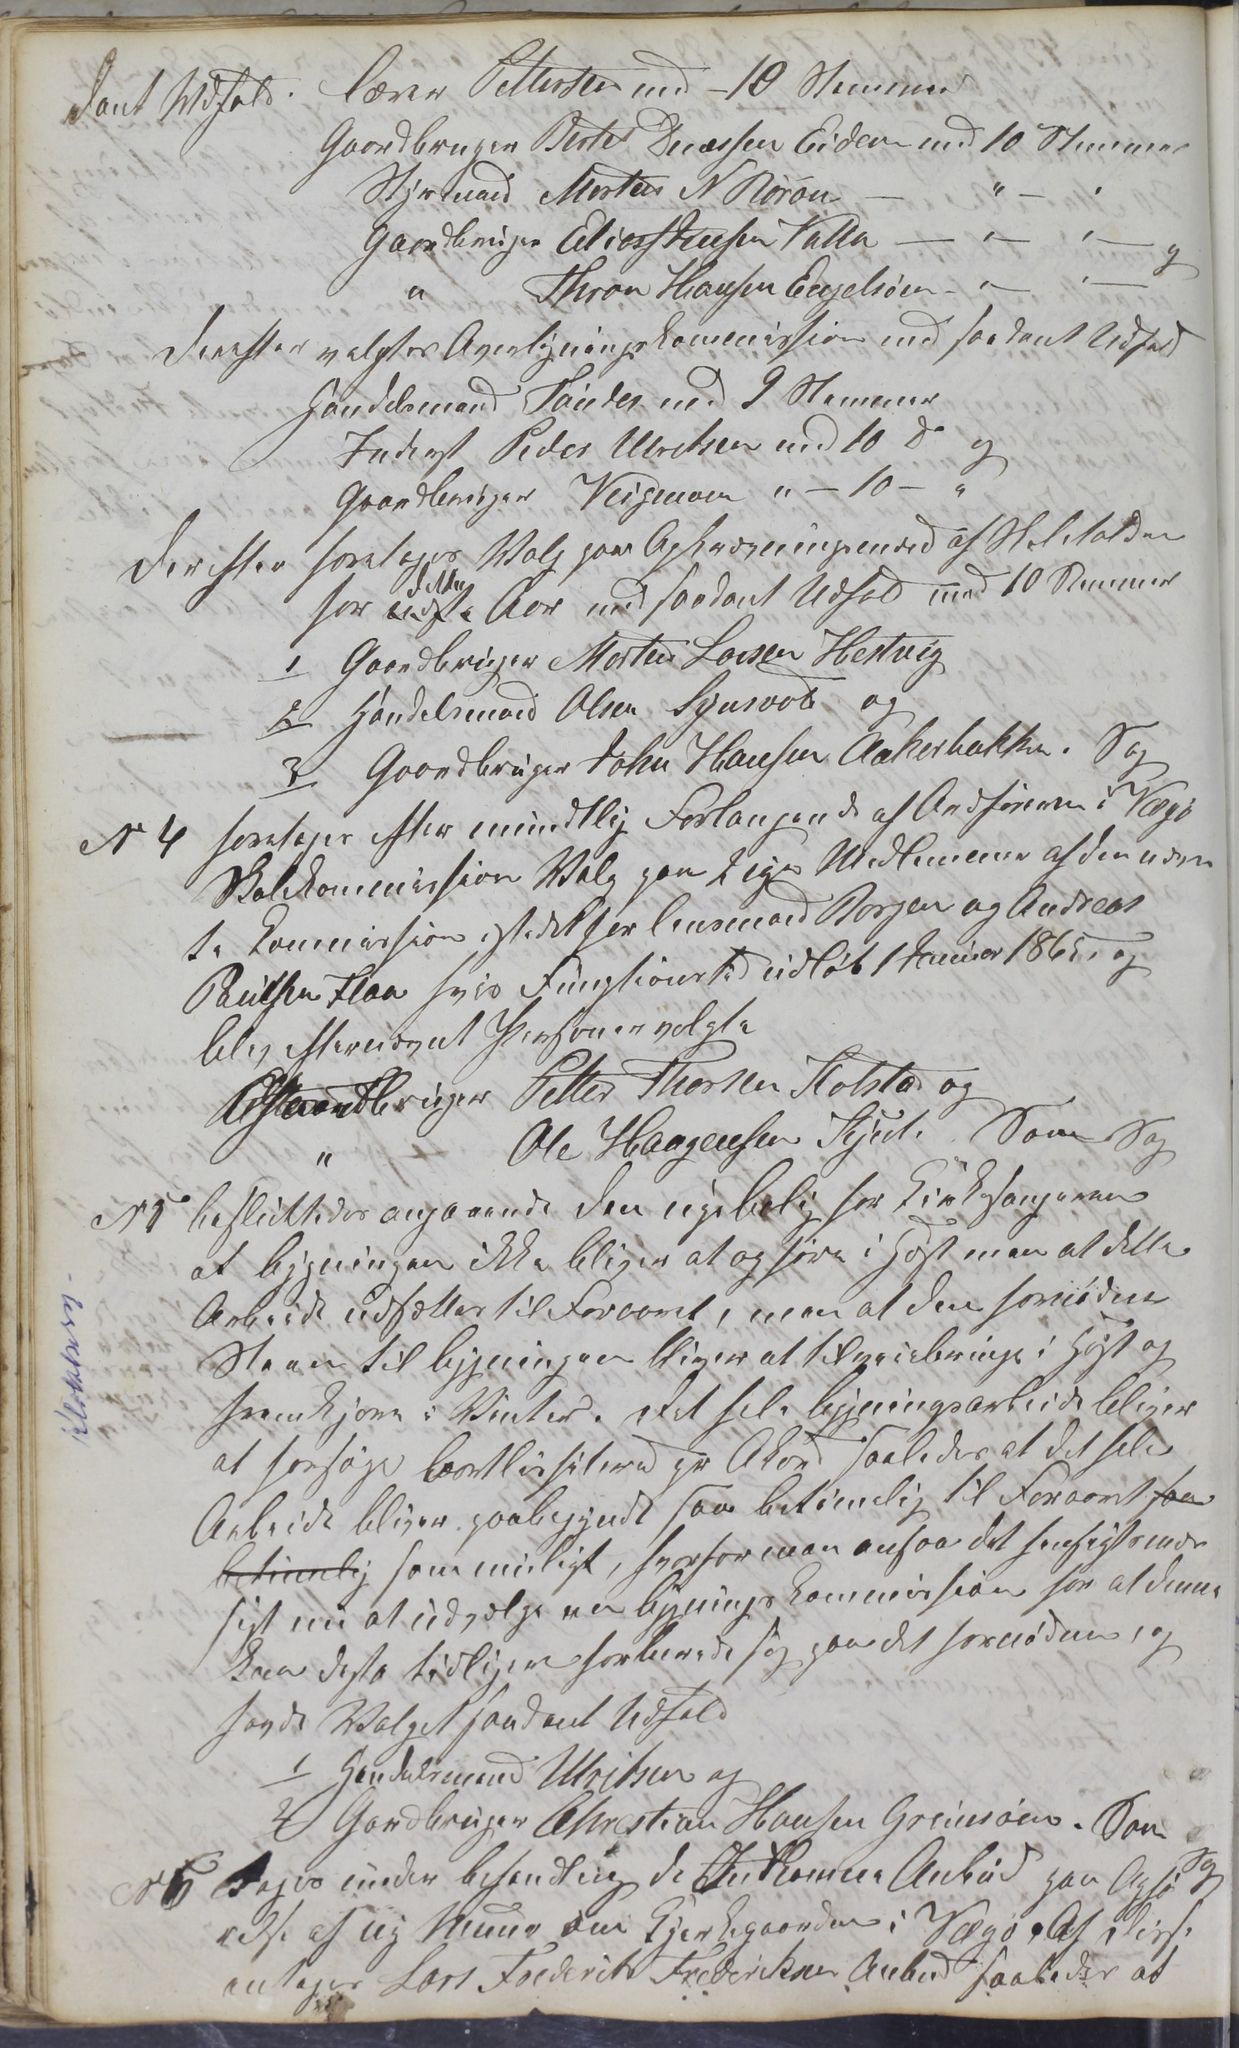 dant Udfald. Lærer Pettersen med - 10 Stemmer
Gaardbruger Bertel Enessen Eidem med 10 Stemmer
Styrmand Morten N Rörön — " — "
Gaardbruger Elias Jensen Valla — " — " — og
" Thron Hansen Engelsöen - " — " —
Derefter valgtes Overligningskommission med saadant Udfald
Handelsmand Tönder med 9 Stemmer
Inderst Peder Ulriksen med 10 do og
Gaardbruger Vergman " — 10 — "
Derefter foretoges Valg paa af Matetolden
for dette Aar med saadant Udfald med 10 Stemmer
1 Gaardbruger Morten Larsen Hestvig
2 Handelsmand Olsen og
3 Gaardbruger John Hansen Aakerbakken. Sag
N 4 foretoges efter mundtlig Forlangende af Ordföreren i Vegö
Skolekommission Valg paa 2 nye Medlemmer af den nævn
te Kommission istedetfor Lensmand Borgen og Andreas
Paulsen Floa hvis Funktionstid udlöb 1 Januar 1865, og
blev efternævnt Personer valgte
Gaardbruger Petter Thorsen Kolstad og
" Ole Haagensen Kjul. Som Sag
N 5 besluttedes angaaende den nye bolig for Kirkesangeren
at bygningen ikke bliver at opföre i Höst men at dette
Arbeide udsættes til Foraaret, men at den fornödne
Steen til bygningen bliver at tilveiebringe i Höst og
fremkjöre i Vinter. Det hele bygningsarbeide bliver
at forsöge bortlisiteret pr Akord saaledes at det hele
Arbeide bliver paabegyndt saa betimelig til Foraaret saa
betimelig som muligt, hvorfor man ansaa det hensigtsmæs
sigt nu at udvælge en bygningskommission for at denne
kan desto tidligere forberede sig paa det fornödne, og
havde Valget saadant Udfald
1 Handelsmand Ulriksen og
2 Gardbruger Christian Hansen Greinsöen. Som
Sag
N 6 Toges under behandling de indkomne Anbud paa Opfö
relse af ny Muur om Kjerkegaarden i Vegö. Af disse
antoges Lars Frederik Frederiksen Anbud saaledes at
Klokkerbolig